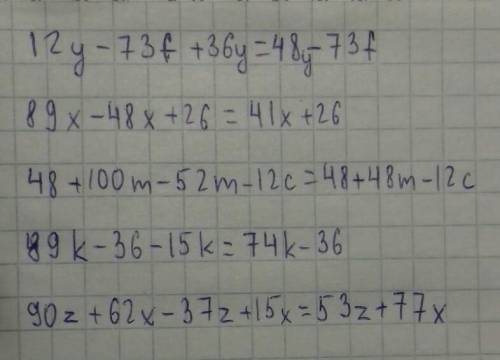 12y - 73f + 36y = 48y - 73f
89x - 48x + 26 = 41x + 26
48 + 100m - 52m - 12c = 48 + 48m - 12c
89k - 36 - 15k = 74k - 36
90z + 62x - 37z + 15x = 53z + 77x